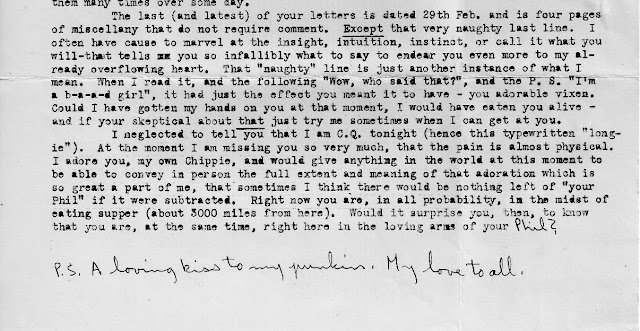 them many times over some day.
The last (and latest) of your letters is dated 29th Feb. and is four pages
of miscellany that do not require comment. Except that very naughty last line. I
often have cause to marvel at the insight, intuition, instinct, or call it what you
will-that tells you so infallibly what to say to endear you even more to my al-
ready overflowing heart. That "naughty" line is just another instance of what I
mean. When I read it, and the following "Wow, who said that?", and the P. S. "I'm
a b-a-a-d girl", it had just the effect you meant it to have - you adorable vixen.
Could I have gotten my hands on you at that moment, I would have eaten you alive -
and if your skeptical about that just try me sometimes when I can get at you.
I neglected to tell you that I am C.Q. tonight (hence this typewritten "long-
ie"). At the moment I am missing you so very much, that the pain is almost physical.
I adore you, my own Chippie, and would give anything in the world at this moment to
be able to convey in person the full extent and meaning of that adoration which is
so great a part of me, that sometimes I think there would be nothing left of "your
Phil" if it were subtracted. Right now you are, in all probability, in the midst of
eating supper (about 3000 miles from here). Would it surprise you, then, to know
that you are, at the same time, right here in the loving arms of your Phil?
P.S. A loving kiss to my punkin. My love to all.